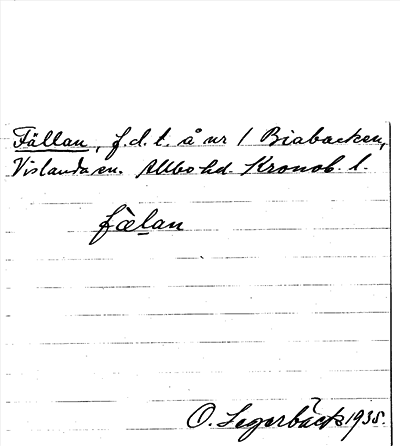 Fällan, f.d.t. å nr 1 Biabacken,
Vislanda sn. Allbo hd. Kronob. l.
fälan
O. Segerbäck 1935.